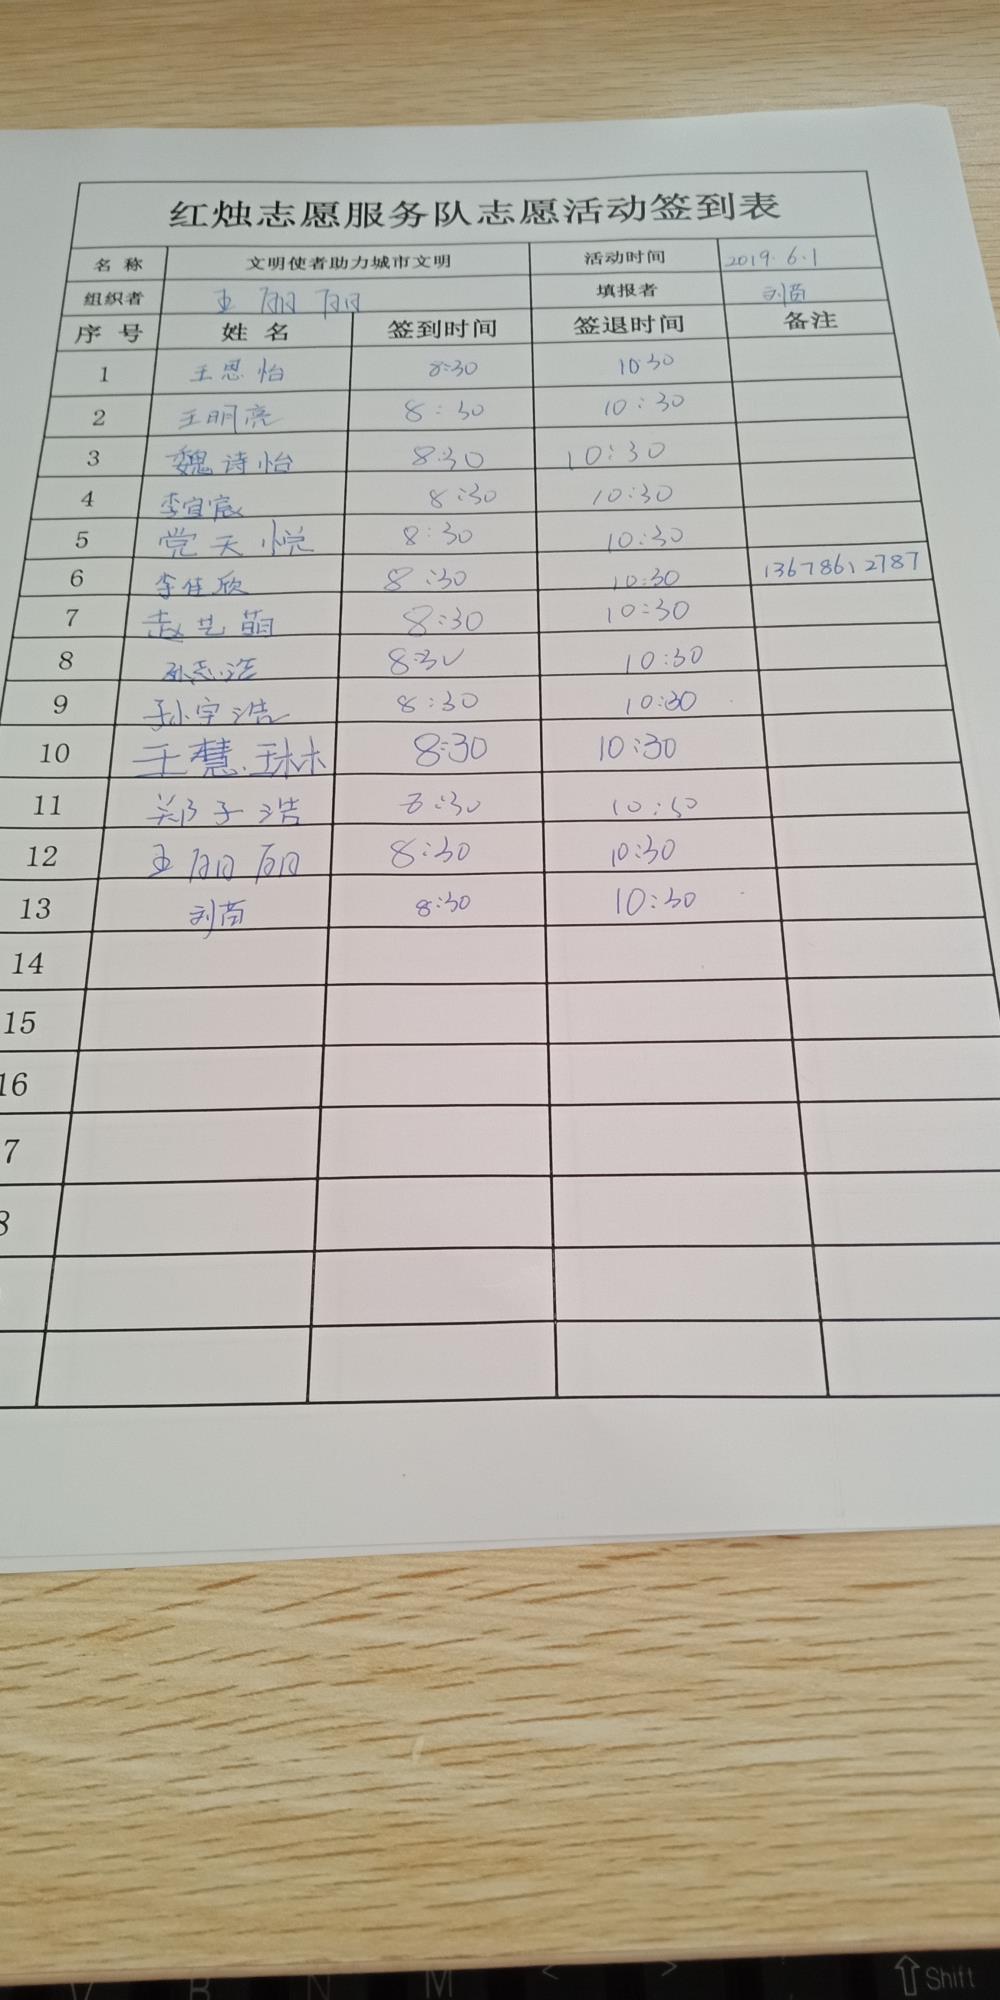 红烛志愿服务队志愿活动签到表
名 称 文明使者助力城市文明 活动时间 2019.6.1
组织者 王丽丽 填报者 刘茵
序 号 姓 名 签到时间 签退时间 备注
1 王思怡 8:30 10:30
2 王明亮 8:30 10:30
3 魏诗怡 8:30 10:30
4 李宜宸 8:30 10:30
5 党天悦 8:30 10:30
6 李佳欣 8:30 10:30 13678612787
7 赵艺萌 8:30 10:30
8 孙志浩 8:30 10:30
9 孙宇浩 8:30 10:30
10 王慧琳 8:30 10:30
11 郑子浩 8:30 10:30
12 王丽丽 8:30 10:30
13 刘茵 8:30 10:30
14
15
16
7
8
V B N M < > Shift